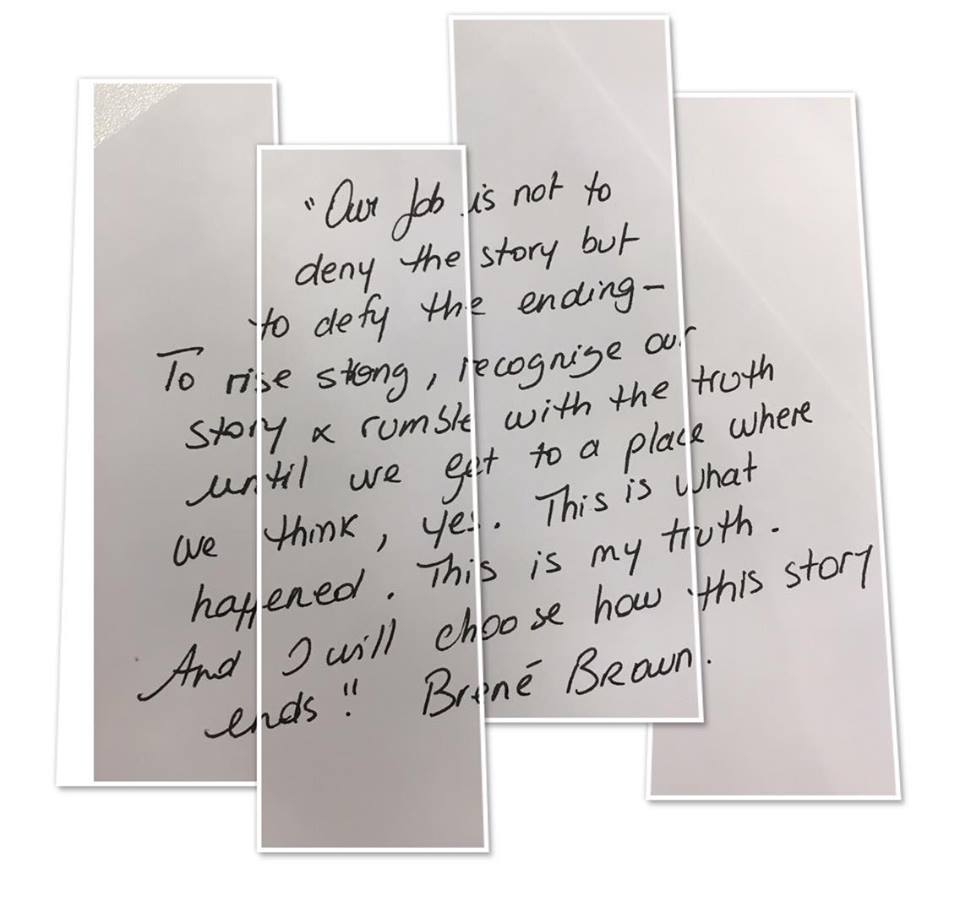 "Our Job is not to
deny the story but
to defy the ending-
To rise strong, recognize our
story & rumble with the truth
until we get to a place where
we think, yes. This is what
happened. This is my truth.
And I will choose how this story
ends" Brené Brown.